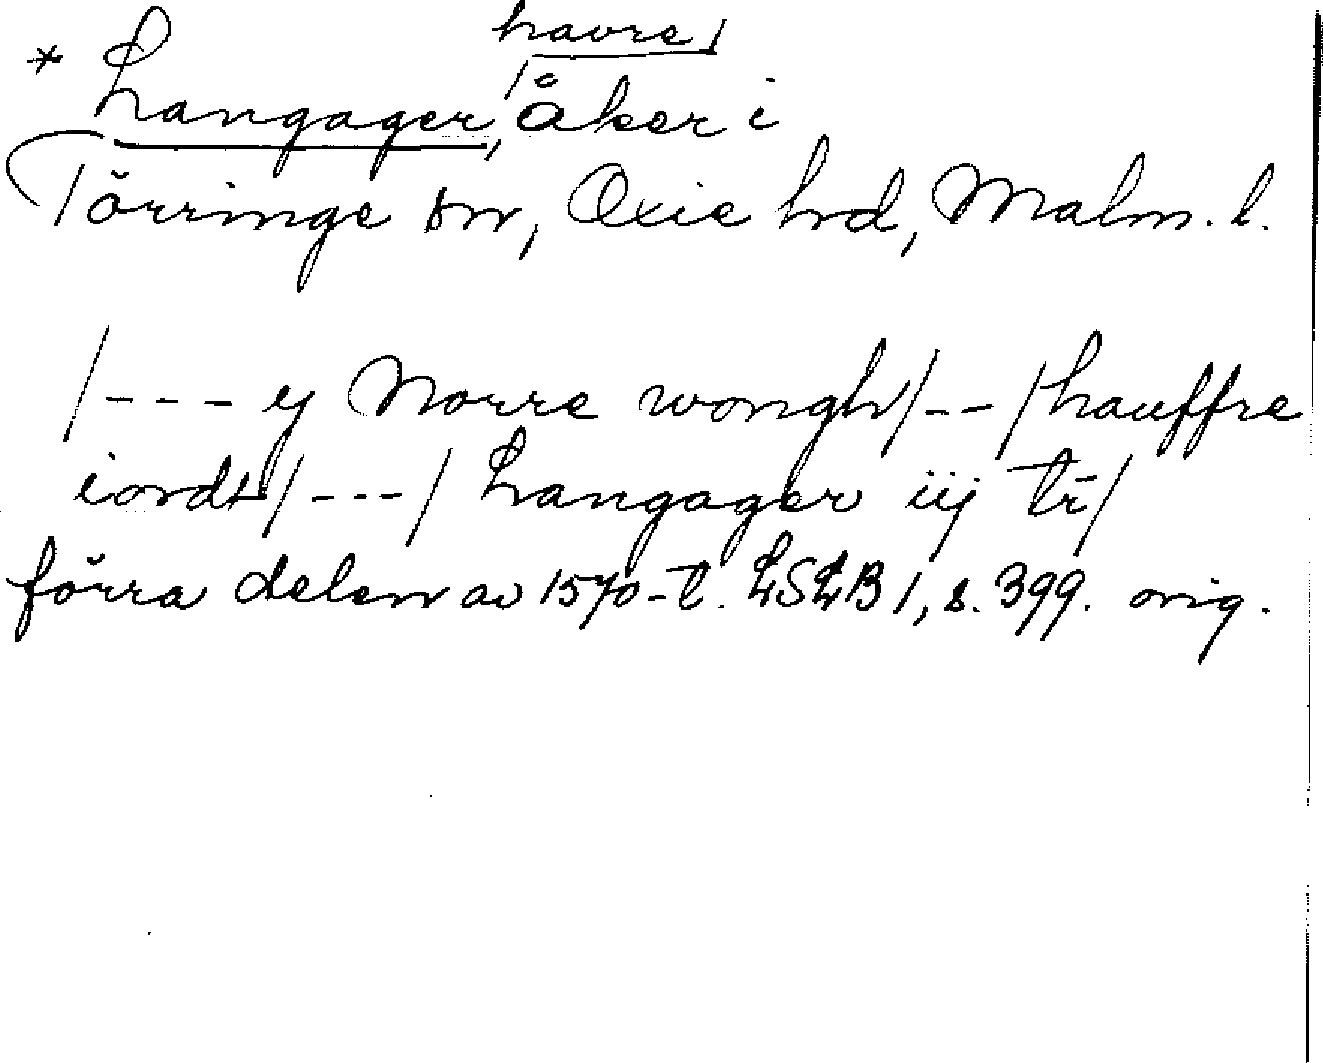 havre/
* Langager, /åker i
Törringe sn, Oxie hd, Malm. l.
/---y Norre wongh/--/hauffre
iordt/---/ Langager iij tr̄/
förra delen av 1570-t. LSLB 1, s. 399. orig.